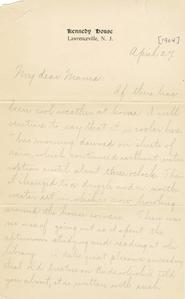 Kennedy House
Lawrenceville, N. J.
April 27
My dear Mama:
If this has
been cool weather at home I will
venture to say that it is cooler here.
This morning dawned in sheets of
rain, which continued without
until about three o'clock. Then
it changed to a drizzle and a north
around the house corners. There was
no use of going out so I spent the
afternoon studying and reading at the
library. I take great pleasure in
that old
you about, it is written with such